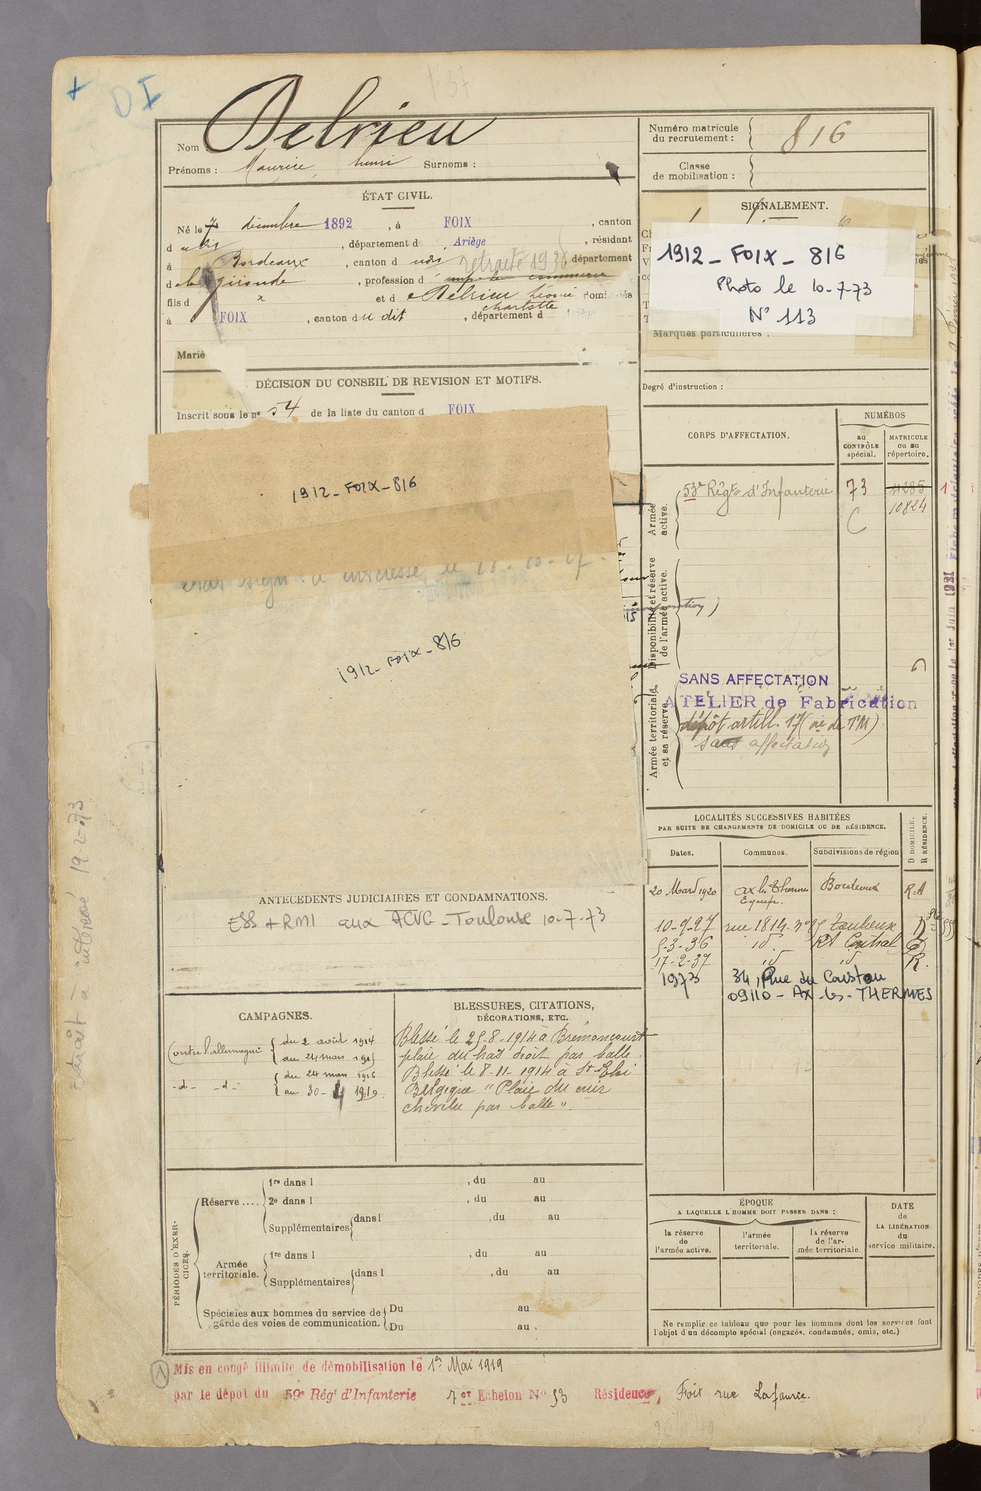 DI
Nom Delrieu
Prénoms : Maurice, henri Surnoms :
Numéro matricule du recrutement : 816
Classe de mobilisation :
ÉTAT CIVIL.
Né le 7 décembre 1892, à FOIX, canton
d u dit, département d Ariège, résidant
à Bordeaux, canton d udit retraité 1936 département
d e la gironde, profession d' empé de commerce
fils d x et d e Delrieu Léonie Charlotte domiciliés
à FOIX, canton du dit, département d Ariège
Marié
SIGNALEMENT.
1912 - FOIX - 816
Photo le 10-7-73
N° 113
Marques particulières :
Degré d'instruction :
DÉCISION DU CONSEIL DE REVISION ET MOTIFS.
Inscrit sous le n° 54 de la liste du canton d FOIX
1912 - FOIX - 816
1912 - FOIX - 816
CORPS D'AFFECTATION.
NUMÉROS
au CONTRÔLE spécial.
MATRICULE ou au répertoire.
Armée active.
53e Régt d'Infanterie 73
10824
Disponibilité et réserve de l'armée active.
Armée territoriale et sa réserve.
SANS AFFECTATION
ATELIER de Fabrication
dépôt artill. 17
sans affectation
LOCALITÉS SUCCESSIVES HABITÉES
PAR SUITE DE CHANGEMENTS DE DOMICILE OU DE RÉSIDENCE.
Dates. Communes. Subdivisions de région D DOMICILE. R RÉSIDENCE.
20 Mars 1920 ax les Thermes Bordeaux R.A
10-9-27 rue 1814 D
5-3-36 id. Rt Central D
17-2-37 id id R.
1973 34, Rue du Coustou
09110 - AX-les-THERMES
ANTÉCÉDENTS JUDICIAIRES ET CONDAMNATIONS.
ESS + RMI aux ACVG - Toulouse 10-7-73
Extrait à intéressé 19-2-73
CAMPAGNES.
Contre l'allemagne du 2 août 1914
au 24 mars 1915
-d- -d- du 24 mars 1916
au 30-4 1919
BLESSURES, CITATIONS, DÉCORATIONS, ETC.
Blessé le 25-8-1914 à Brémoncourt
plaie du bras droit par balle.
Blessé le 8-11-1914 à St Eloi
Belgique "Plaie du cuir
chevelu par balle".
PÉRIODES D'EXERCICES.
Réserve .... 1re dans l , du au
2e dans l , du au
Supplémentaires dans l , du au
Armée territoriale. 1re dans l , du au
Supplémentaires dans l , du au
Spéciales aux hommes du service de garde des voies de communication. Du au
Du au .
ÉPOQUE
A LAQUELLE L'HOMME DOIT PASSER DANS :
la réserve de l'armée active.
l'armée territoriale.
la réserve de l'armée territoriale.
DATE de LA LIBÉRATION du service militaire.
Ne remplir ce tableau que pour les hommes dont les services font l'objet d'un décompte spécial (engagés, condamnés, omis, etc.)
Mis en congé illimité de démobilisation le 1er Mai 1919
par le dépot du 59e Régt d'Infanterie 7e Echelon N° 53 Résidence, Foix rue Lafaurie.